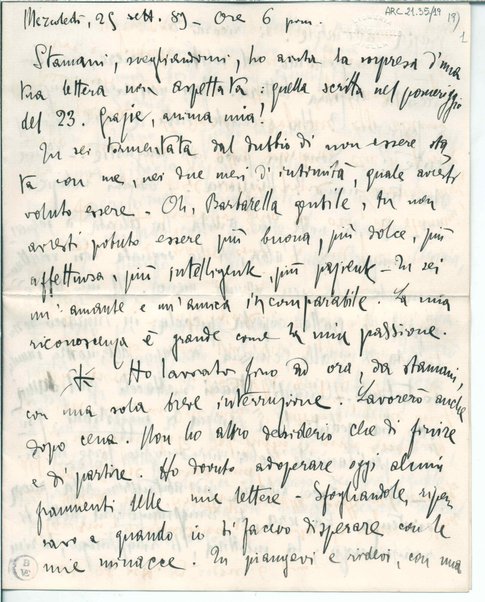 ARC 21.35/19
18)
1
Mercoledì, 25 sett. 89 - Ore 6 pom.
Stamani, svegliandomi, ho avuta la sorpresa d'una
tua lettera non aspettata: quella scritta nel pomeriggio
del 23. Grazie, anima mia!
Tu sei tormentata dal dubbio di non essere sta-
ta con me, nei due mesi d'intimità, quale avresti
voluto essere. Oh, Barbarella gentile, tu non
avresti potuto essere più buona, più dolce, più
affettuosa, più intelligente, più paziente - Tu sei
un'amante e un'amica incomparabile. La mia
riconoscenza è grande come la mia passione.
Ho lavorato fino ad ora, da stamani,
con una sola breve interruzione. Lavorerò anche
dopo cena. Non ho altro desiderio che di finire
e di partire. Ho dovuto adoperare oggi alcuni
frammenti delle mie lettere - Sfogliandole, ripen-
savo a quando io ti facevo disperare con le
mie minacce. Tu piangevi e ridevi, con una